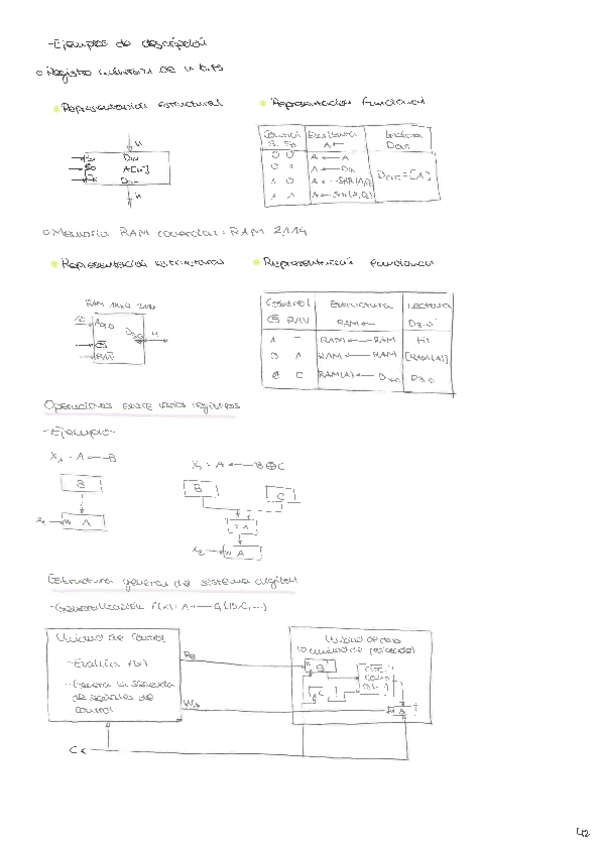 -Ejemplos de descripción
o Registro universal de n bits
• Representación estructural
• Representación funcional
n
Din
A[n]
Dout
n
Control Escritura Lectura
S1 S0 A← Dout
0 0 A ← A
0 1 A ← Din
1 0 A ← SHR(A, D)
1 1 A ← SHL(A, D)
Dout=[A]
o Memoria RAM comercial: RAM 2114
• Representación estructural
• Representación funcional
RAM 1Kx4 2114
10 A9-0
D3-0 4
CS
R/W
Control Escritura Lectura
CS R/W RAM← D3-0
1 - RAM ← RAM HI
0 1 RAM ← RAM [RAM(A)]
0 0 RAM(A) ← D3-0 D3-0
Operaciones entre varios registros
-Ejemplo-
X1: A ← B
X2: A ← B⊕C
B
X1 W A
B C
X2 W A
Estructura general del sistema digital
-Generalización f(x): A ← G(B,C,...)
Unidad de control
-Evalúa f(x)
-Genera la secuencia de señales de control
Unidad de datos
(o unidad de procesado)
WA
B
C
Ck
42